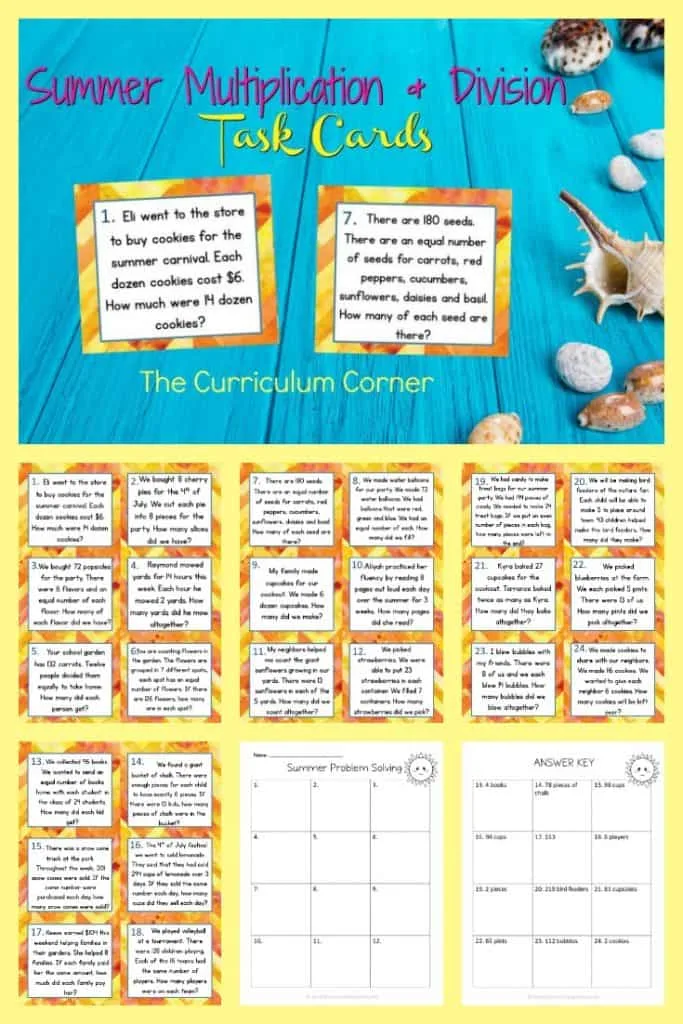 Summer Multiplication & Division
Task Cards
1. Eli went to the store
to buy cookies for the
summer carnival. Each
dozen cookies cost $6.
How much were 14 dozen
cookies?
7. There are 180 seeds.
There are an equal number
of seeds for carrots, red
peppers, cucumbers,
sunflowers, daisies and basil.
How many of each seed are
there?
The Curriculum Corner
1. Eli went to the store
to buy cookies for the
summer carnival. Each
dozen cookies cost $6.
How much were 14 dozen
cookies?
2. We bought 8 cherry
pies for the 4th of
July. We cut each pie
into 8 pieces for the
party. How many slices
did we have?
3. We bought 72 popsicles
for the party. There
were 6 flavors and an
equal number of each
flavor. How many of
each flavor did we have?
4. Raymond mowed
yards for 14 hours this
week. Each hour he
mowed 2 yards. How
many yards did he mow
altogether?
5. Your school garden
has 132 carrots. Twelve
people decided them
equally to take home.
How many did each
person get?
6. You are counting flowers
in the garden. The flowers are
grouped in 7 different spots,
each spot has an equal
number of flowers. If there
are 126 flowers, how many
are in each spot?
7. There are 180 seeds.
There are an equal number
of seeds for carrots, red
peppers, cucumbers,
sunflowers, daisies and basil.
How many of each seed are
there?
8. We made water balloons
for our party. We made 72
water balloons. We had
balloons that were red,
green and blue. We had an
equal number of each. How
many did we fill?
9. My family made
cupcakes for our
cookout. We made 6
dozen cupcakes. How
many did we make?
10. Aliyah practiced her
fluency by reading 8
pages out loud each day
over the summer for 3
weeks. How many pages
did she read?
11. My neighbors helped
me count the giant
sunflowers growing in our
yards. There were 13
sunflowers in each of the
5 yards. How many did we
count altogether?
12. We picked
strawberries. We were
able to put 23
strawberries in each
container. We filled 7
containers. How many
strawberries did we pick?
19. We had candy to make
treat bags for our summer
party. We had 194 pieces of
candy. We needed to make 24
treat bags. If we put an even
number of pieces in each bag,
how many pieces were left in
the end?
20. We will be making bird
feeders at the nature fair.
Each child will be able to
make 5 to place around
town. 43 children helped
make the bird feeders. How
many did they make?
21. Kyra baked 27
cupcakes for the
cookout. Terrance baked
twice as many as Kyra.
How many did they bake
altogether?
22. We picked
blueberries at the farm.
We each picked 5 pints.
There were 13 of us.
How many pints did we
pick altogether?
23. I blew bubbles with
my friends. There were
8 of us and we each
blew 14 bubbles. How
many bubbles did we
blow altogether?
24. We made cookies to
share with our neighbors.
We made 16 cookies. We
wanted to give each
neighbor 6 cookies. How
many cookies will be left
over?
13. We collected 96 books.
We wanted to send an
equal number of books
home with each student in
the class of 24 students.
How many did each kid
get?
14. We found a giant
bucket of chalk. There were
enough pieces for each child
to have exactly 6 pieces. If
there were 13 kids, how many
pieces of chalk were in the
bucket?
15. There was a snow cone
truck at the park.
Throughout the week, 201
snow cones were sold. If the
same number were
purchased each day, how
many snow cones were sold?
16. The 4th of July festival
we went to sold lemonade.
They said that they had sold
294 cups of lemonade over 3
days. If they sold the same
number each day, how many
cups did they sell each day?
17. Reese earned $104 this
weekend helping families in
their gardens. She helped 8
families. If each family paid
her the same amount, how
much did each family pay
her?
18. We played volleyball
at a tournament. There
were 126 children playing.
Each of the 16 teams had
the same number of
players. How many players
were on each team?
Name,
Summer Problem Solving
1. 2. 3.
4. 5. 6.
7. 8. 9.
10. 11. 12.
ANSWER KEY
13. 4 books 14. 78 pieces of chalk 15. 98 cups
16. 98 cups 17. $13 18. 5 players
19. 2 pieces 20. 215 bird feeders 21. 81 cupcakes
22. 65 pints 23. 112 bubbles 24. 2 cookies